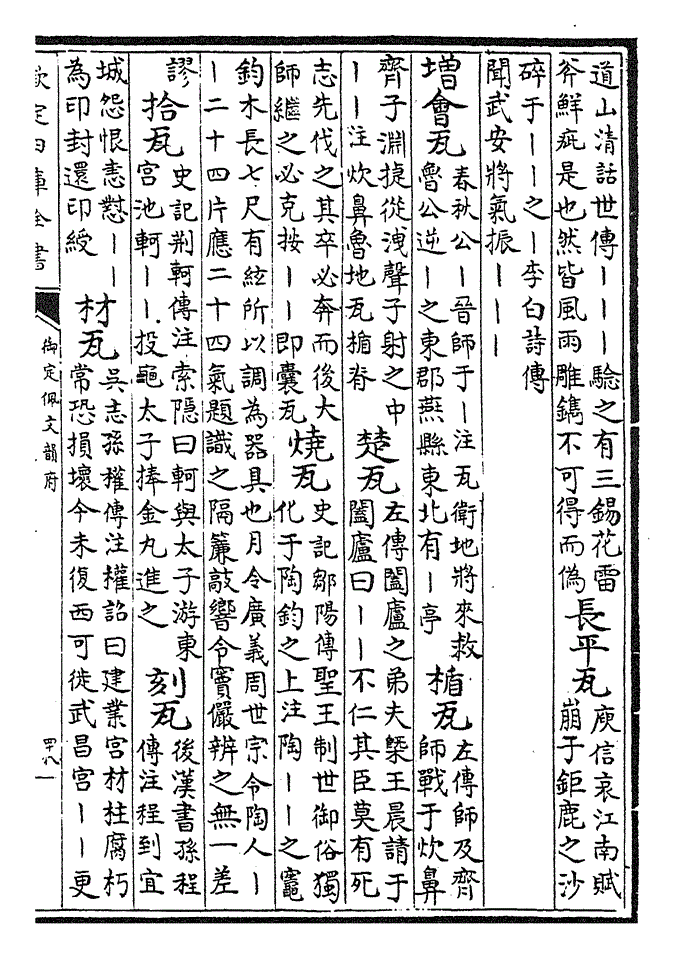 道山清話世傳｜｜｜驗之有三錫花雷
斧鮮疵是也然皆風雨雕鐫不可得而偽
長平瓦
庾信哀江南賦
崩于鉅鹿之沙
碎于｜｜之｜李白詩傳
聞武安將氣振｜｜｜
增會瓦
春秋公｜晉師于｜注瓦衛地將來救
魯公逆｜之東郡燕縣東北有｜亭
楯瓦
左傳師及齊
師戰于炊鼻
齊子淵捷從洩聲子射之中
｜｜注炊鼻魯地瓦楯脊
楚瓦
左傳闔廬之弟夫槩王晨請于
闔廬曰｜｜不仁其臣莫有死
志先伐之其卒必奔而後大
師繼之必克按｜｜即囊瓦
燒瓦
史記鄒陽傳聖王制世御俗獨
化于陶鈞之上注陶｜｜之竈
鈞木長七尺有絃所以調為器具也月令廣義周世宗令陶人｜
｜二十四片應二十四氣題識之隔簾敲響令竇儼辨之無一差
謬
拾瓦
史記荆軻傳注索隱曰軻與太子游東
宫池軻｜｜投龜太子捧金丸進之
刻瓦
後漢書孫程
傳注程到宜
城怨恨恚懟｜｜
為印封還印綬
材瓦
吳志孫權傳注權詔曰建業宫材柱腐朽
常恐損壞今未復西可徙武昌宫｜｜更
欽定四庫全書
御定佩文韻府